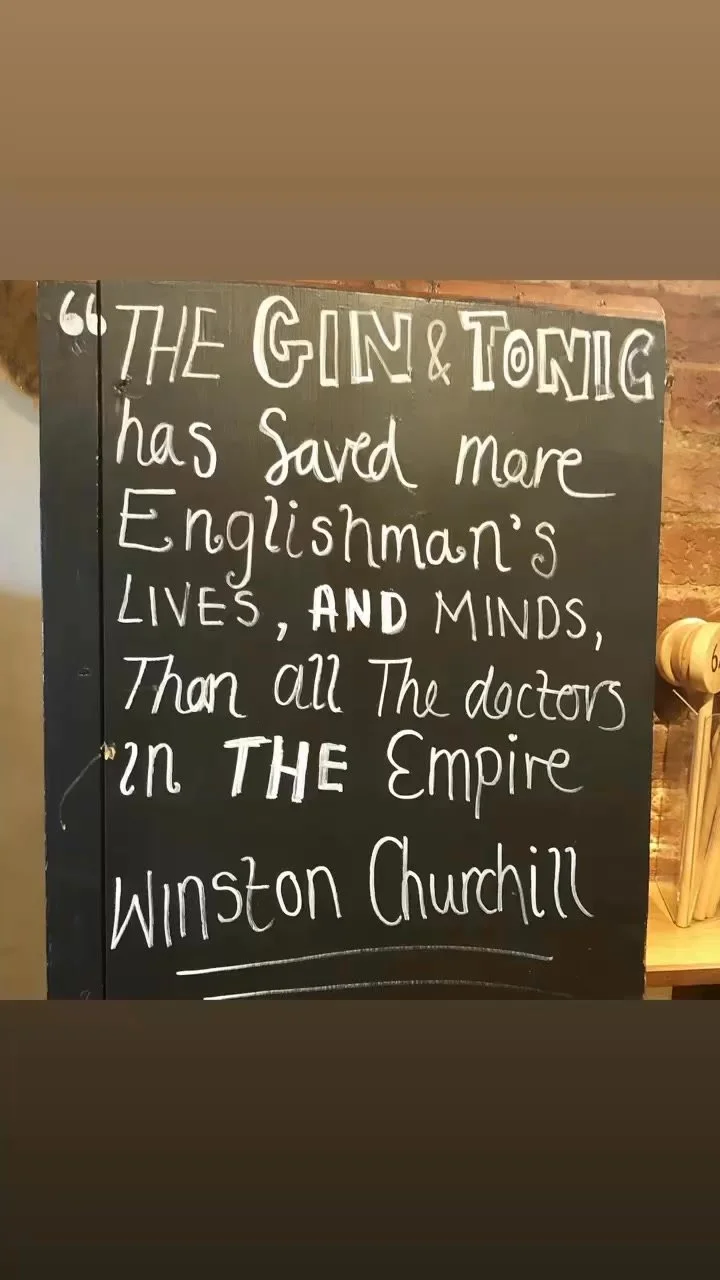 “THE GIN & TONIC
has Saved more
Englishman's
LIVES, AND MINDS,
Than all The doctors
in THE Empire
Winston Churchill